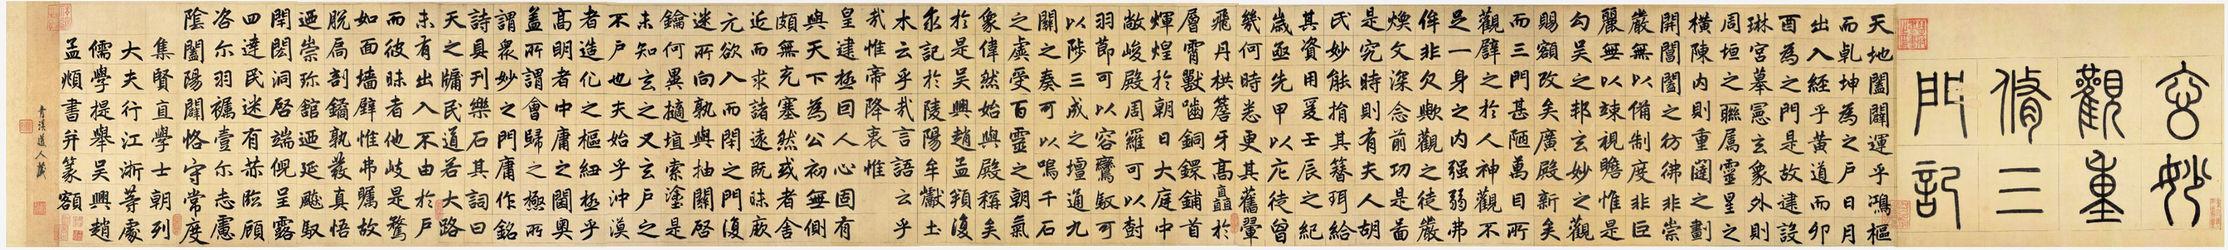 玄妙
觀重
脩三
門記
天地闔闢運乎鴻樞
而乾坤為之戶日月
出入經乎黃道而卯
酉為之門是故建設
琳宮摹憲玄象外則
周垣之聯屬靈星之
橫陳內則重闥之劃
開閶闔之彷彿非崇
嚴無以備制度非巨
麗無以竦視瞻惟是
勾吳之邦玄妙之觀
賜額改矣廣殿新矣
而三門甚陋萬目所
觀辟之於人神觀不
足一身之內强弱弗
侔非欠歟觀之徒嚴
煥文深念前功是啚
是究時則有夫人胡
氏妙能捐其簪珥給
其資用爰壬辰之紀
歲亟先甲以庀徒曾
幾何時悉更其舊翬
飛丹栱簷牙高矗於
層霄獸嚙銅鐶鋪首
輝煌於朝日大庭中
敞峻殿周羅可以樹
羽節可以容鸞馭可
以陟三成之壇通九
關之奏可以鳴千石
之虡受百靈之朝氣
象偉然始與殿稱矣
於是吳興趙孟頫復
求記於陵陽牟巘土
木云乎我言語云乎
哉惟帝降衷惟
皇建極因人心固有
與天下為公初無側
頗無充塞然或者舍
近而求諸遠既昧厥
元欲入而閉之門復
迷所向孰與抽關啓
鑰何異擿埴索塗是
未知玄之又玄戶之
不戶也夫始乎沖漠
者造化之樞紐極乎
高明者中庸之閫奧
蓋所謂會歸之極所
謂衆妙之門庸作銘
詩真刊樂石其詞曰
天之牖民道若大路
未有出入不由於戶
而彼昧者他岐是騖
如面墻壁惟弗矚故
脫扃剖鐍孰發真悟
迺崇珎館迺延飈馭
閈閎洞啓端倪呈露
四達民迷有恭臨顧
咨尔羽襹壹尔志慮
陰闔陽闢恪守常度
集賢直學士朝列
大夫行江浙等處
儒學提舉吳興趙
孟頫書并篆額
青溪道人藏